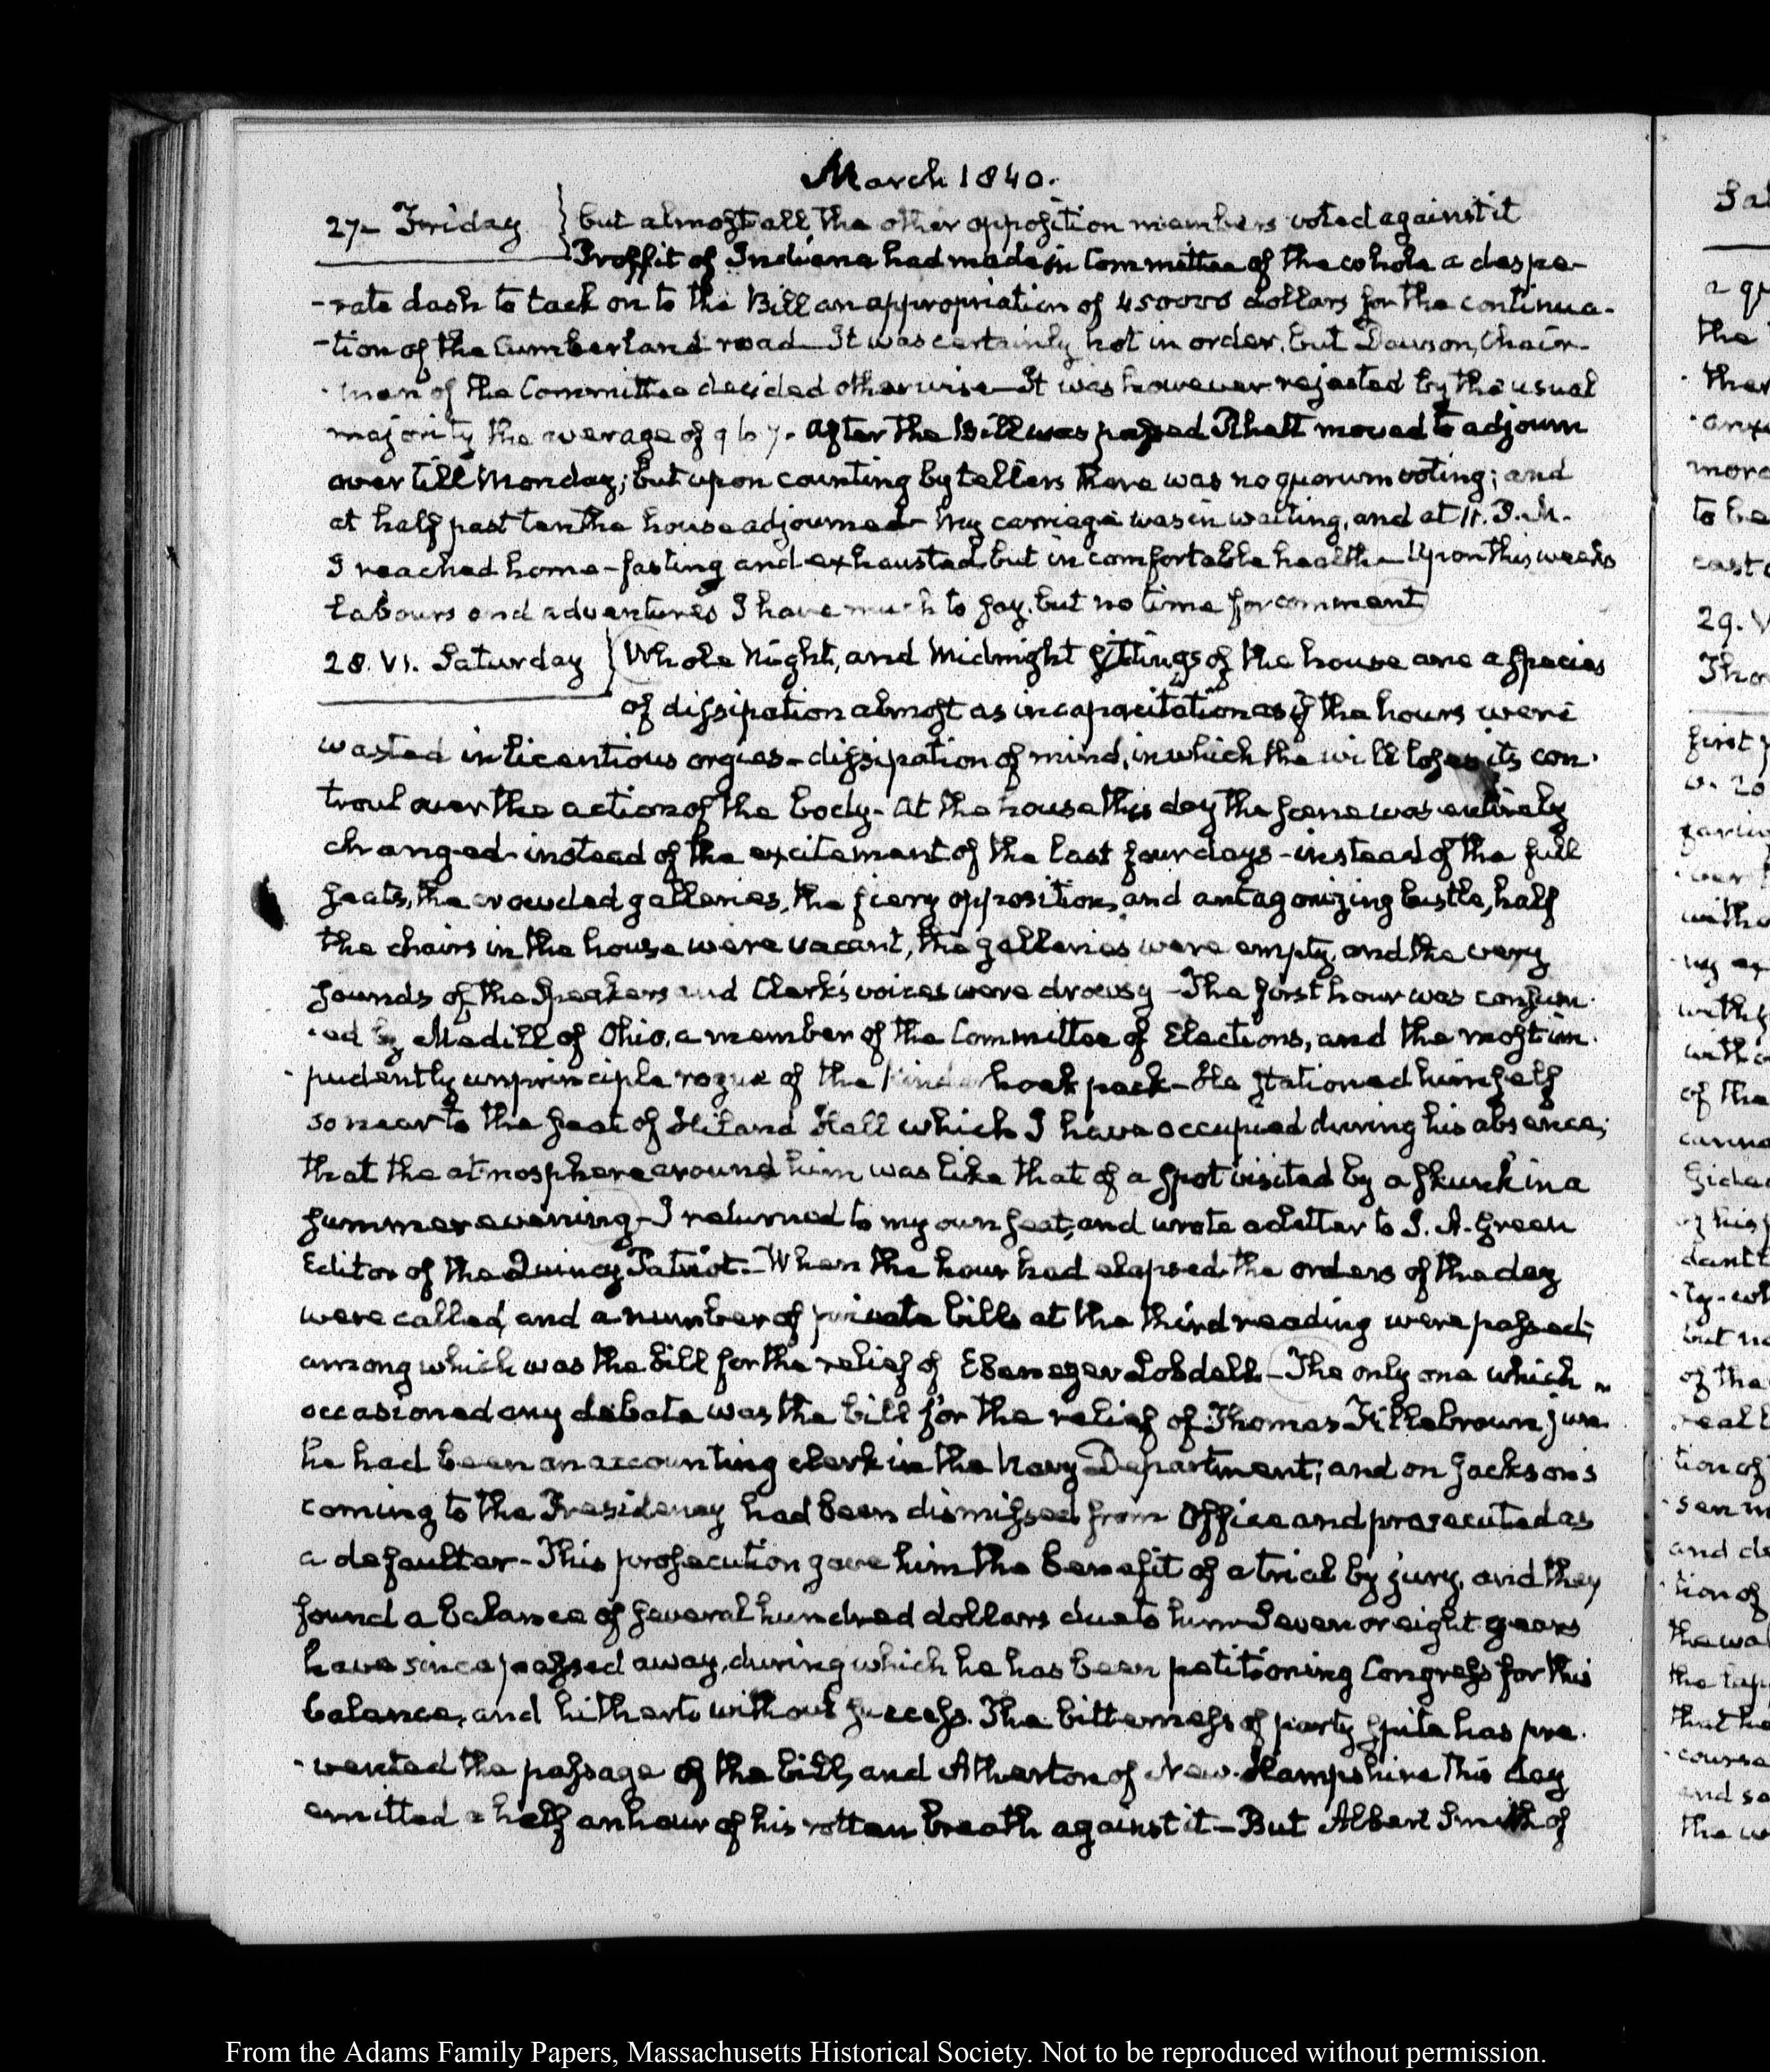 March 1840.
27- Friday } but almost all the other opposition members voted against it
Proffit of Indiana had made in Committee of the whole a despe-
-rate dash to tack on to the Bill an appropriation of 450000 dollars for the continua-
-tion of the Cumberland road. It was certainly not in order, but Dawson, Chair-
-man of the Committee decided otherwise—It was however rejected by the usual
majority the average of 9 to 7. After the Bill was passed Rhett moved to adjourn
over till Monday; but upon counting by tellers there was no quorum voting; and
at half past ten the house adjourned- My carriage was in waiting, and at 11. P.M.
I reached home-fasting and exhausted, but in comfortable health—Upon this weeks
labours and adventures I have much to say, but no time for comment
28. VI. Saturday } Whole Night, and Midnight sittings of the house are a species
of dissipation almost as incapacitation as if the hours were
wasted in licentious orgies-dissipation of mind, in which the will loses its con-
troul over the action of the body- At the house this day the scene was entirely
changed-instead of the excitement of the last four days-instead of the full
seats, the crowded galleries, the fiery opposition, and antagonizing bustle, half
the chairs in the house were vacant, the galleries were empty, and the very
sounds of the Speakers and Clerk's voices were drowsy-The first hour was consum-
-ed by Medill of Ohio, a member of the Committee of Elections, and the most im-
-pudently unprinciple rogue of the Kinderhook pack-He stationed himself
so near to the seat of Hiland Hall which I have occupied during his absence;
that the atmosphere around him was like that of a spot visited by a skunk in a
summer evening-I returned to my own seat, and wrote a letter to J. A. Green
Editor of the Quincy Patriot.-When the hour had elapsed the orders of the day
were called, and a number of private bills at the third reading were passed;
among which was the bill for the relief of Ebenezer Lobdell-The only one which
occasioned any debate was the bill for the relief of Thomas Fillebrown junr
he had been an accounting clerk in the Navy Department; and on Jackson's
coming to the Presidency had been dismissed from Office and prosecuted as
a defaulter-This prosecution gave him the benefit of a trial by jury, and they
found a balance of several hundred dollars due to him-Seven or eight years
have since passed away, during which he has been petitioning Congress for this
balance, and hitherto without success. The bitterness of party spite has pre-
-vented the passage of the bill, and Atherton of New-Hampshire this day
emitted a half an hour of his rotten breath against it-But Albert Smith of
From the Adams Family Papers, Massachusetts Historical Society. Not to be reproduced without permission.